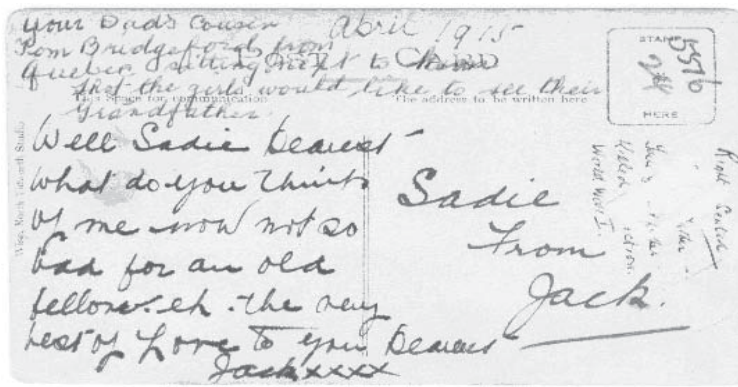 your Dad's Cousin
April 1915
Tom Bridgeford from
Quebec sitting next to him
that the girls would like to see their
Grandfather.
POST CARD
This Space for communication
The address to be written here
STAMP
HERE
Well Sadie Dearest
what do you think
of me now not so
bad for an old
fellow. eh. the very
best of Love to you Dearest
Jack xxxx
Sadie
From
Jack.
World War I.